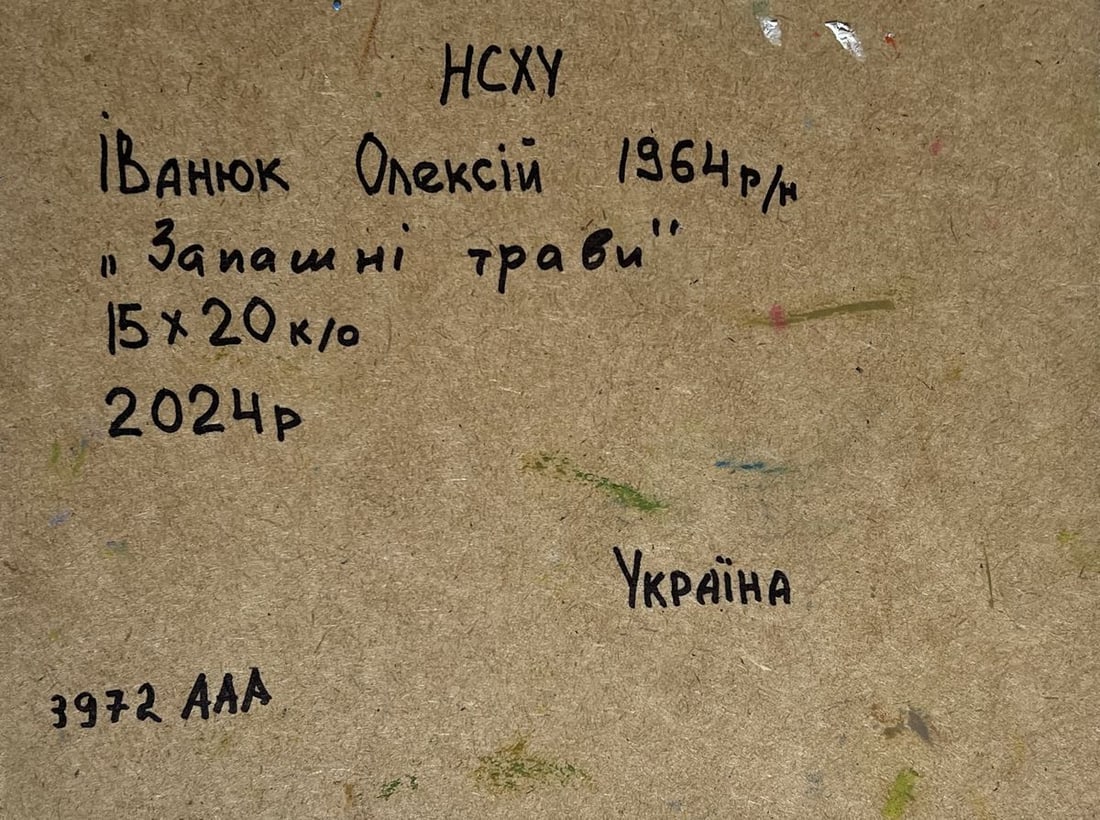 НСХУ
Іванюк Олексій 1964р/н
„Запашні трави"
15x20 к/о
2024р
Україна
3972 ААА